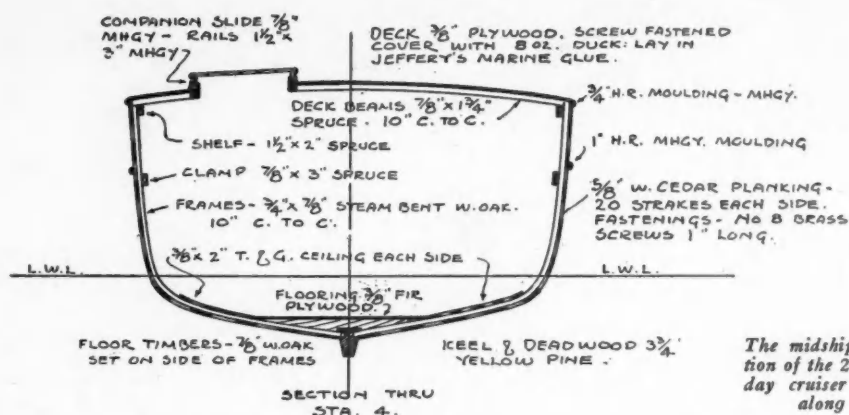 COMPANION SLIDE 7/8"
MHGY - RAILS 1 1/2" x
3" MHGY
DECK 3/8" PLYWOOD. SCREW FASTENED
COVER WITH 8 OZ. DUCK: LAY IN
JEFFERY'S MARINE GLUE.
3/4" H.R. MOULDING - MHGY.
DECK BEAMS 7/8" x 1 3/4"
SPRUCE - 10" C. TO C.
SHELF - 1 1/2" x 2" SPRUCE
1" H.R. MHGY. MOULDING
CLAMP 7/8" x 3" SPRUCE
FRAMES - 3/4" x 7/8" STEAM BENT W. OAK.
10" C. TO C.
5/8" W. CEDAR PLANKING -
20 STRAKES EACH SIDE.
FASTENINGS - No 8 BRASS
SCREWS 1" LONG.
3/8" x 2" T. & G. CEILING EACH SIDE
L.W.L. L.W.L.
FLOORING 3/8" FIR
PLYWOOD
FLOOR TIMBERS - 7/8" W. OAK
SET ON SIDE OF FRAMES
KEEL & DEADWOOD 3 3/4"
YELLOW PINE.
SECTION THRU
STA. 4.
The midship
tion of the 2
day cruiser
along